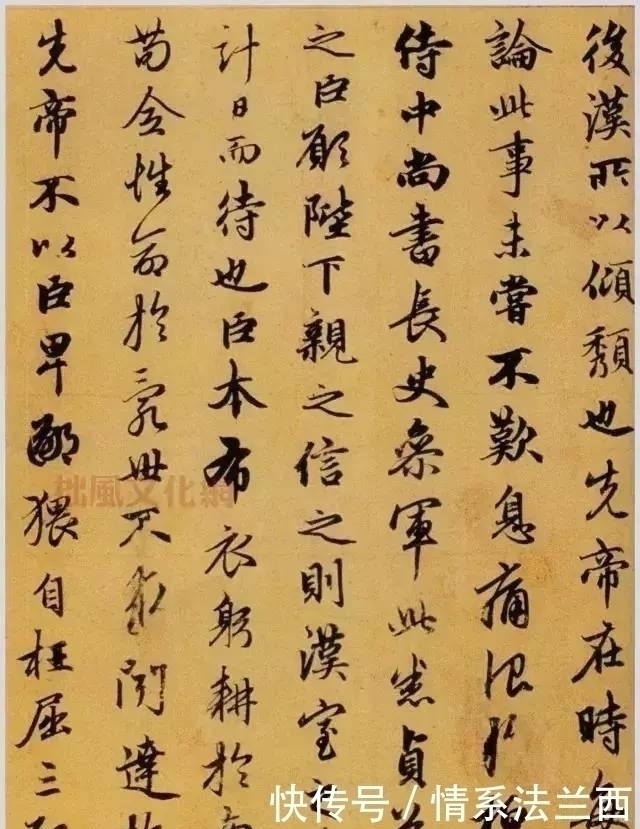 後漢所以傾頹也先帝在時
論此事未嘗不歎息痛恨於
侍中尚書長史參軍此悉貞
之臣願陛下親之信之則漢室
計日而待也臣本布衣躬耕於
苟全性命於亂世不求聞達
先帝不以臣卑鄙猥自枉屈三
拙風文化網
快传号 / 情系法兰西